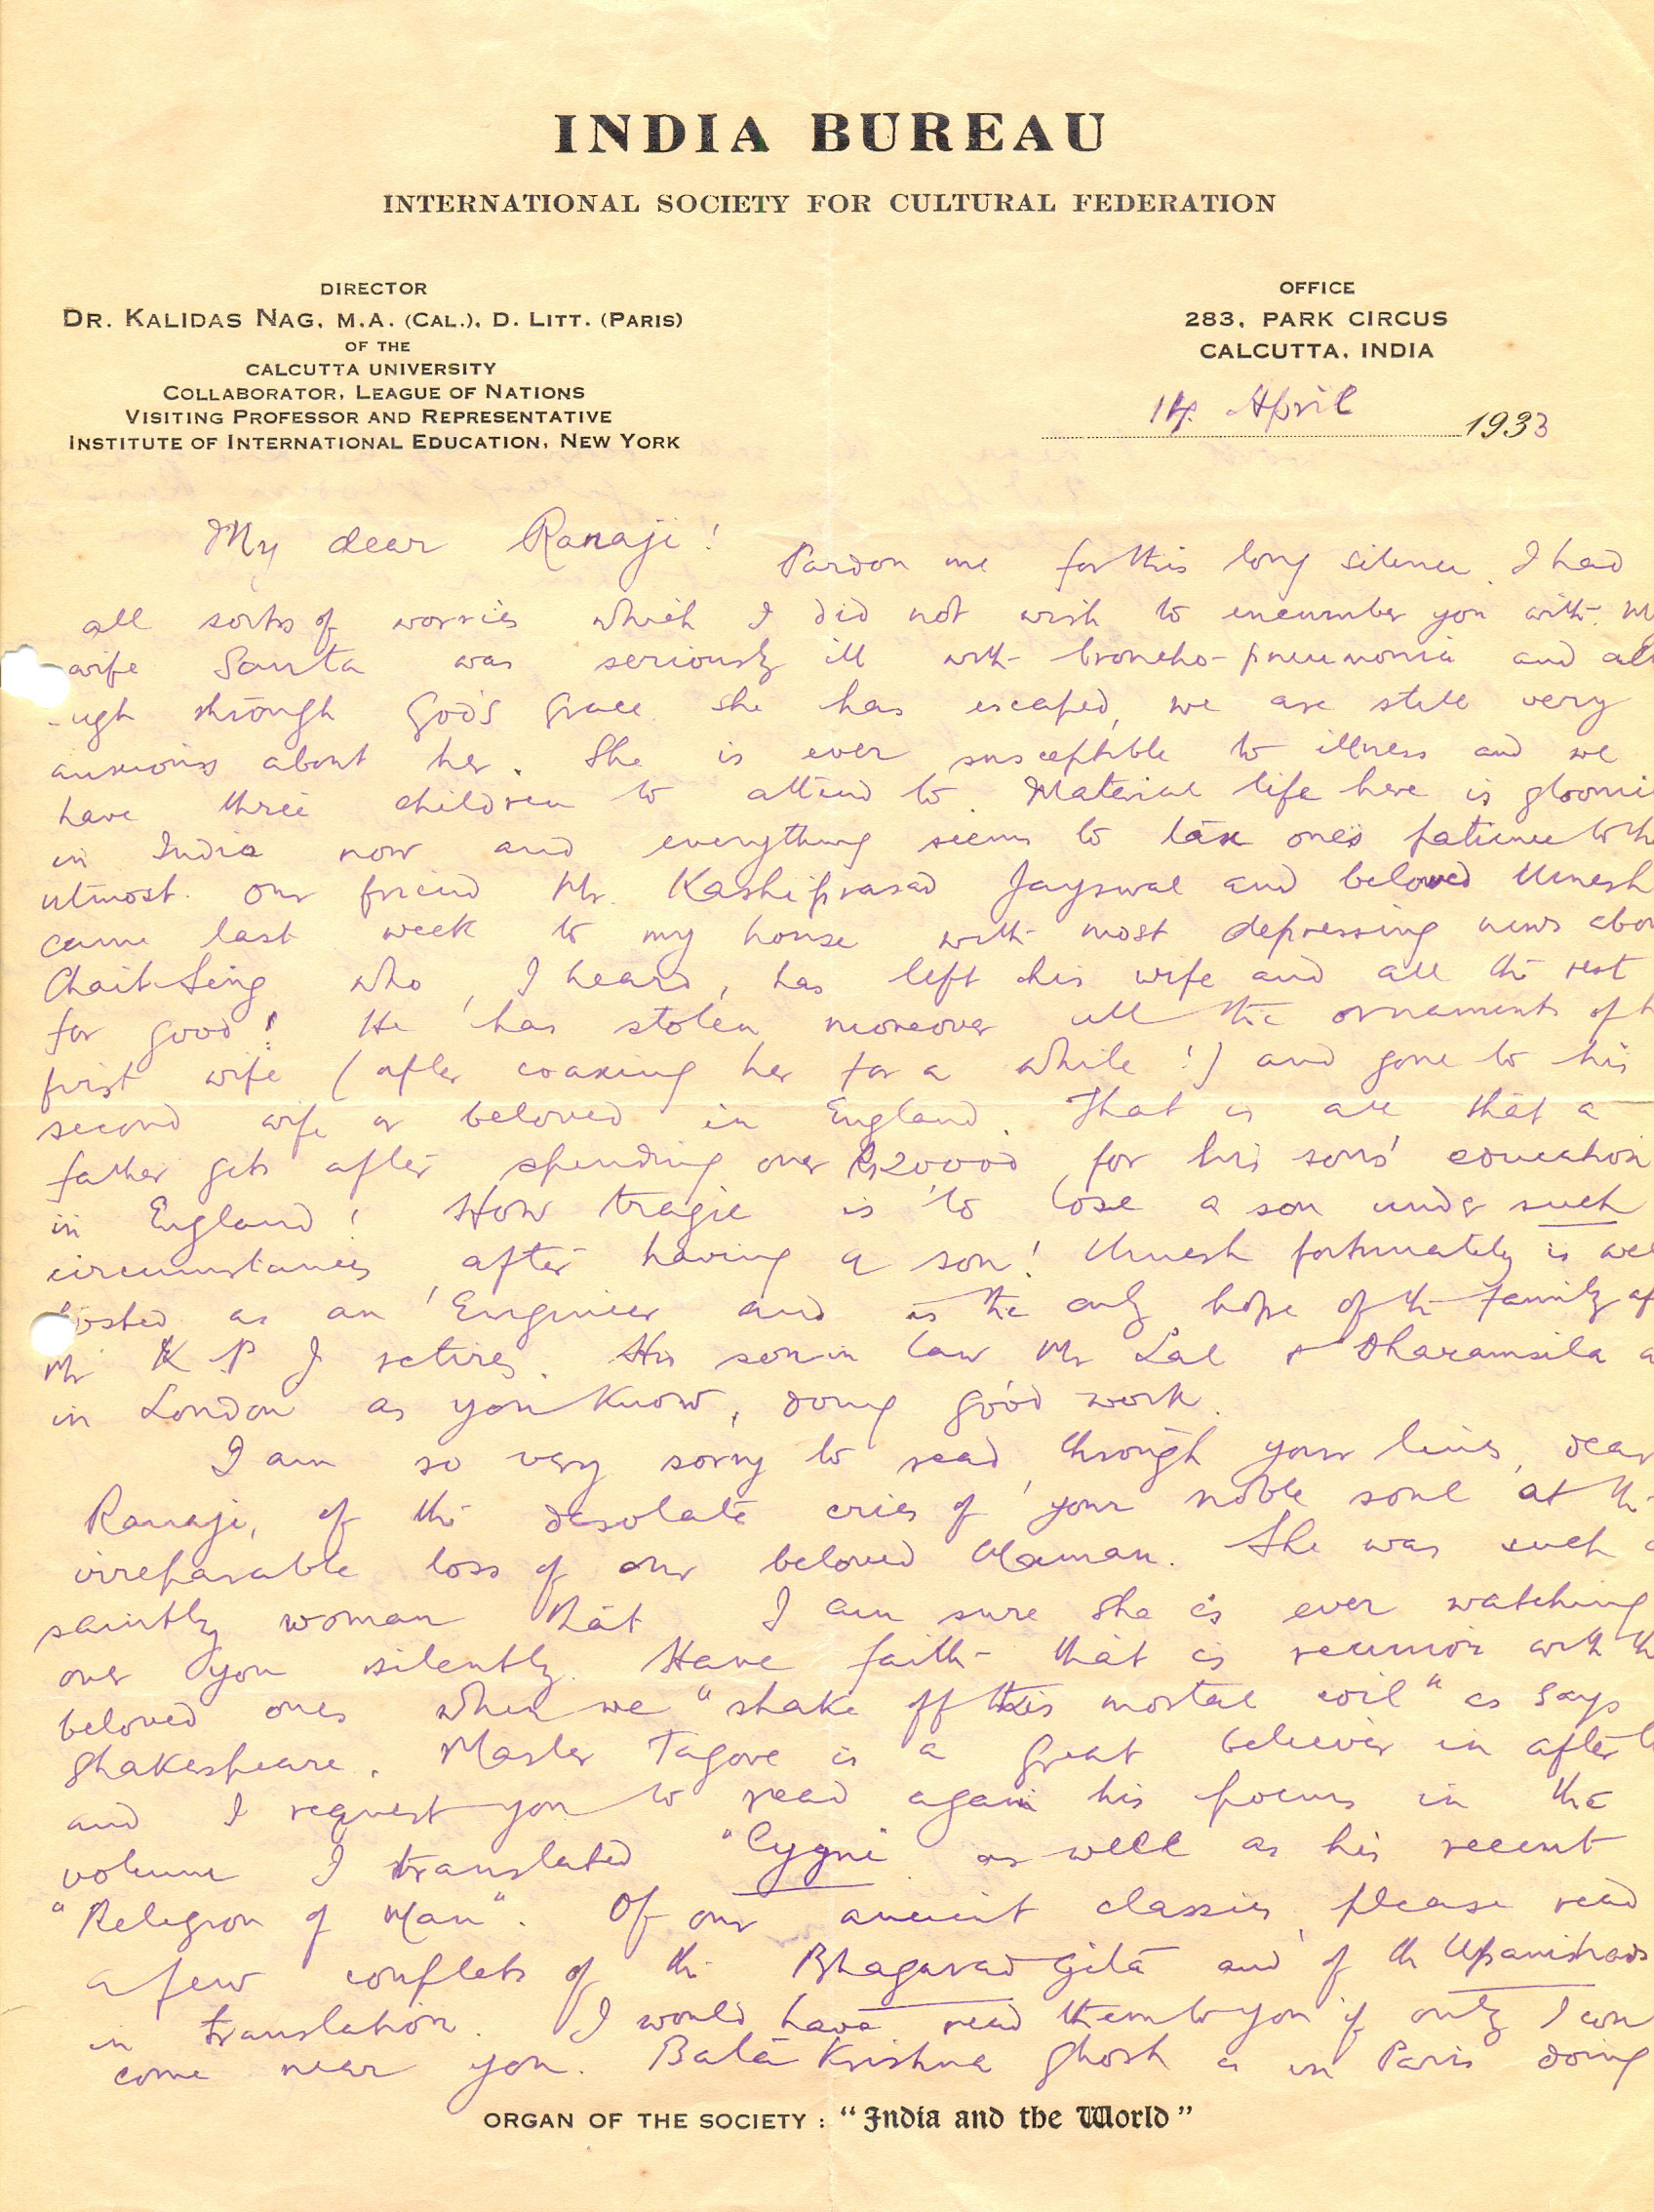 INDIA BUREAU
INTERNATIONAL SOCIETY FOR CULTURAL FEDERATION
DIRECTOR
DR. KALIDAS NAG, M.A. (CAL.), D. LITT. (PARIS)
OF THE
CALCUTTA UNIVERSITY
COLLABORATOR, LEAGUE OF NATIONS
VISITING PROFESSOR AND REPRESENTATIVE
INSTITUTE OF INTERNATIONAL EDUCATION, NEW YORK
OFFICE
283, PARK CIRCUS
CALCUTTA, INDIA
14. April 1933
My dear Ranaji!
Pardon me for this long silence. I had
all sorts of worries which I did not wish to encumber you with. M
wife Santa was seriously ill with broncho-pneumonia and alt
-ugh through God's grace she has escaped, we are still very
anxious about her. She is ever susceptible to illness and we
have three children to attend to. Material life here is gloomi
in India now and everything seems to tax one's patience to the
utmost. Our friend Mr. Kashiprasad Jayswal and beloved Umesh
came last week to my house with most depressing news abou
Chait-Sing who, I heard, has left his wife and all the rest
for good! He has stolen moreover all the ornaments of h
first wife (after coaxing her for a while!) and gone to his
second wife or beloved in England. That is all that a
father gets after spending over Rs20000 for his sons' education
in England! How tragic is to lose a son under such
circumstances, after having a son! Umesh fortunately is wel
posted as an Engineer and is the only hope of the family af
Mr K P J retires. His son in law Mr Lal & Dharamsila a
in London as you know, doing good work.
I am so very sorry to read, through your lines, dear
Ranaji, of the desolate cries of your noble soul at the
irreparable loss of our beloved Maman. She was such a
saintly woman that I am sure she is ever watching
over you silently. Have faith that is reunion with th
beloved ones when we "shake off this mortal coil" as says
Shakespeare. Master Tagore is a great believer in after l
and I request you to read again his poems in the
volume I translated "Cygne" as well as his recent
"Religion of Man". Of our ancient classics, please read
a few couplets of the Bhagavad Gitā and of the Upanishads
in translation. I would have read them to you if only I cou
come near you. Bata Krishna Ghosh is in Paris doing
ORGAN OF THE SOCIETY: "India and the World"